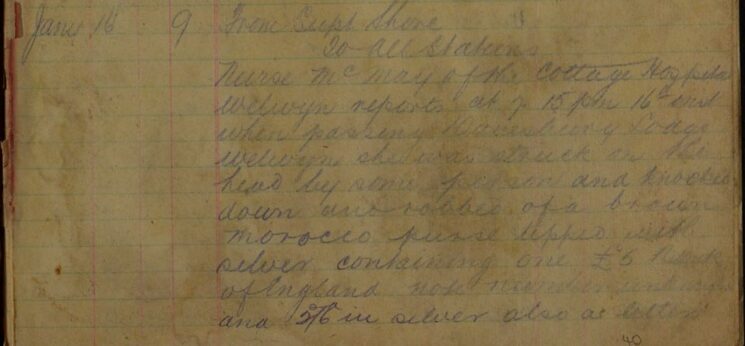 Jany 16 9 From Supt Shore
To all Stations
Nurse Mc May of the Cottage Hospital
Welwyn reports at 7 15 pm 16th inst
when passing Danesbury Lodge
Welwyn she was struck on the
head by some person and knocked
down and robbed of a brown
morocco purse tipped with
silver containing one £5 Bank
of England note number unknown
and 2/6 in silver also a letter